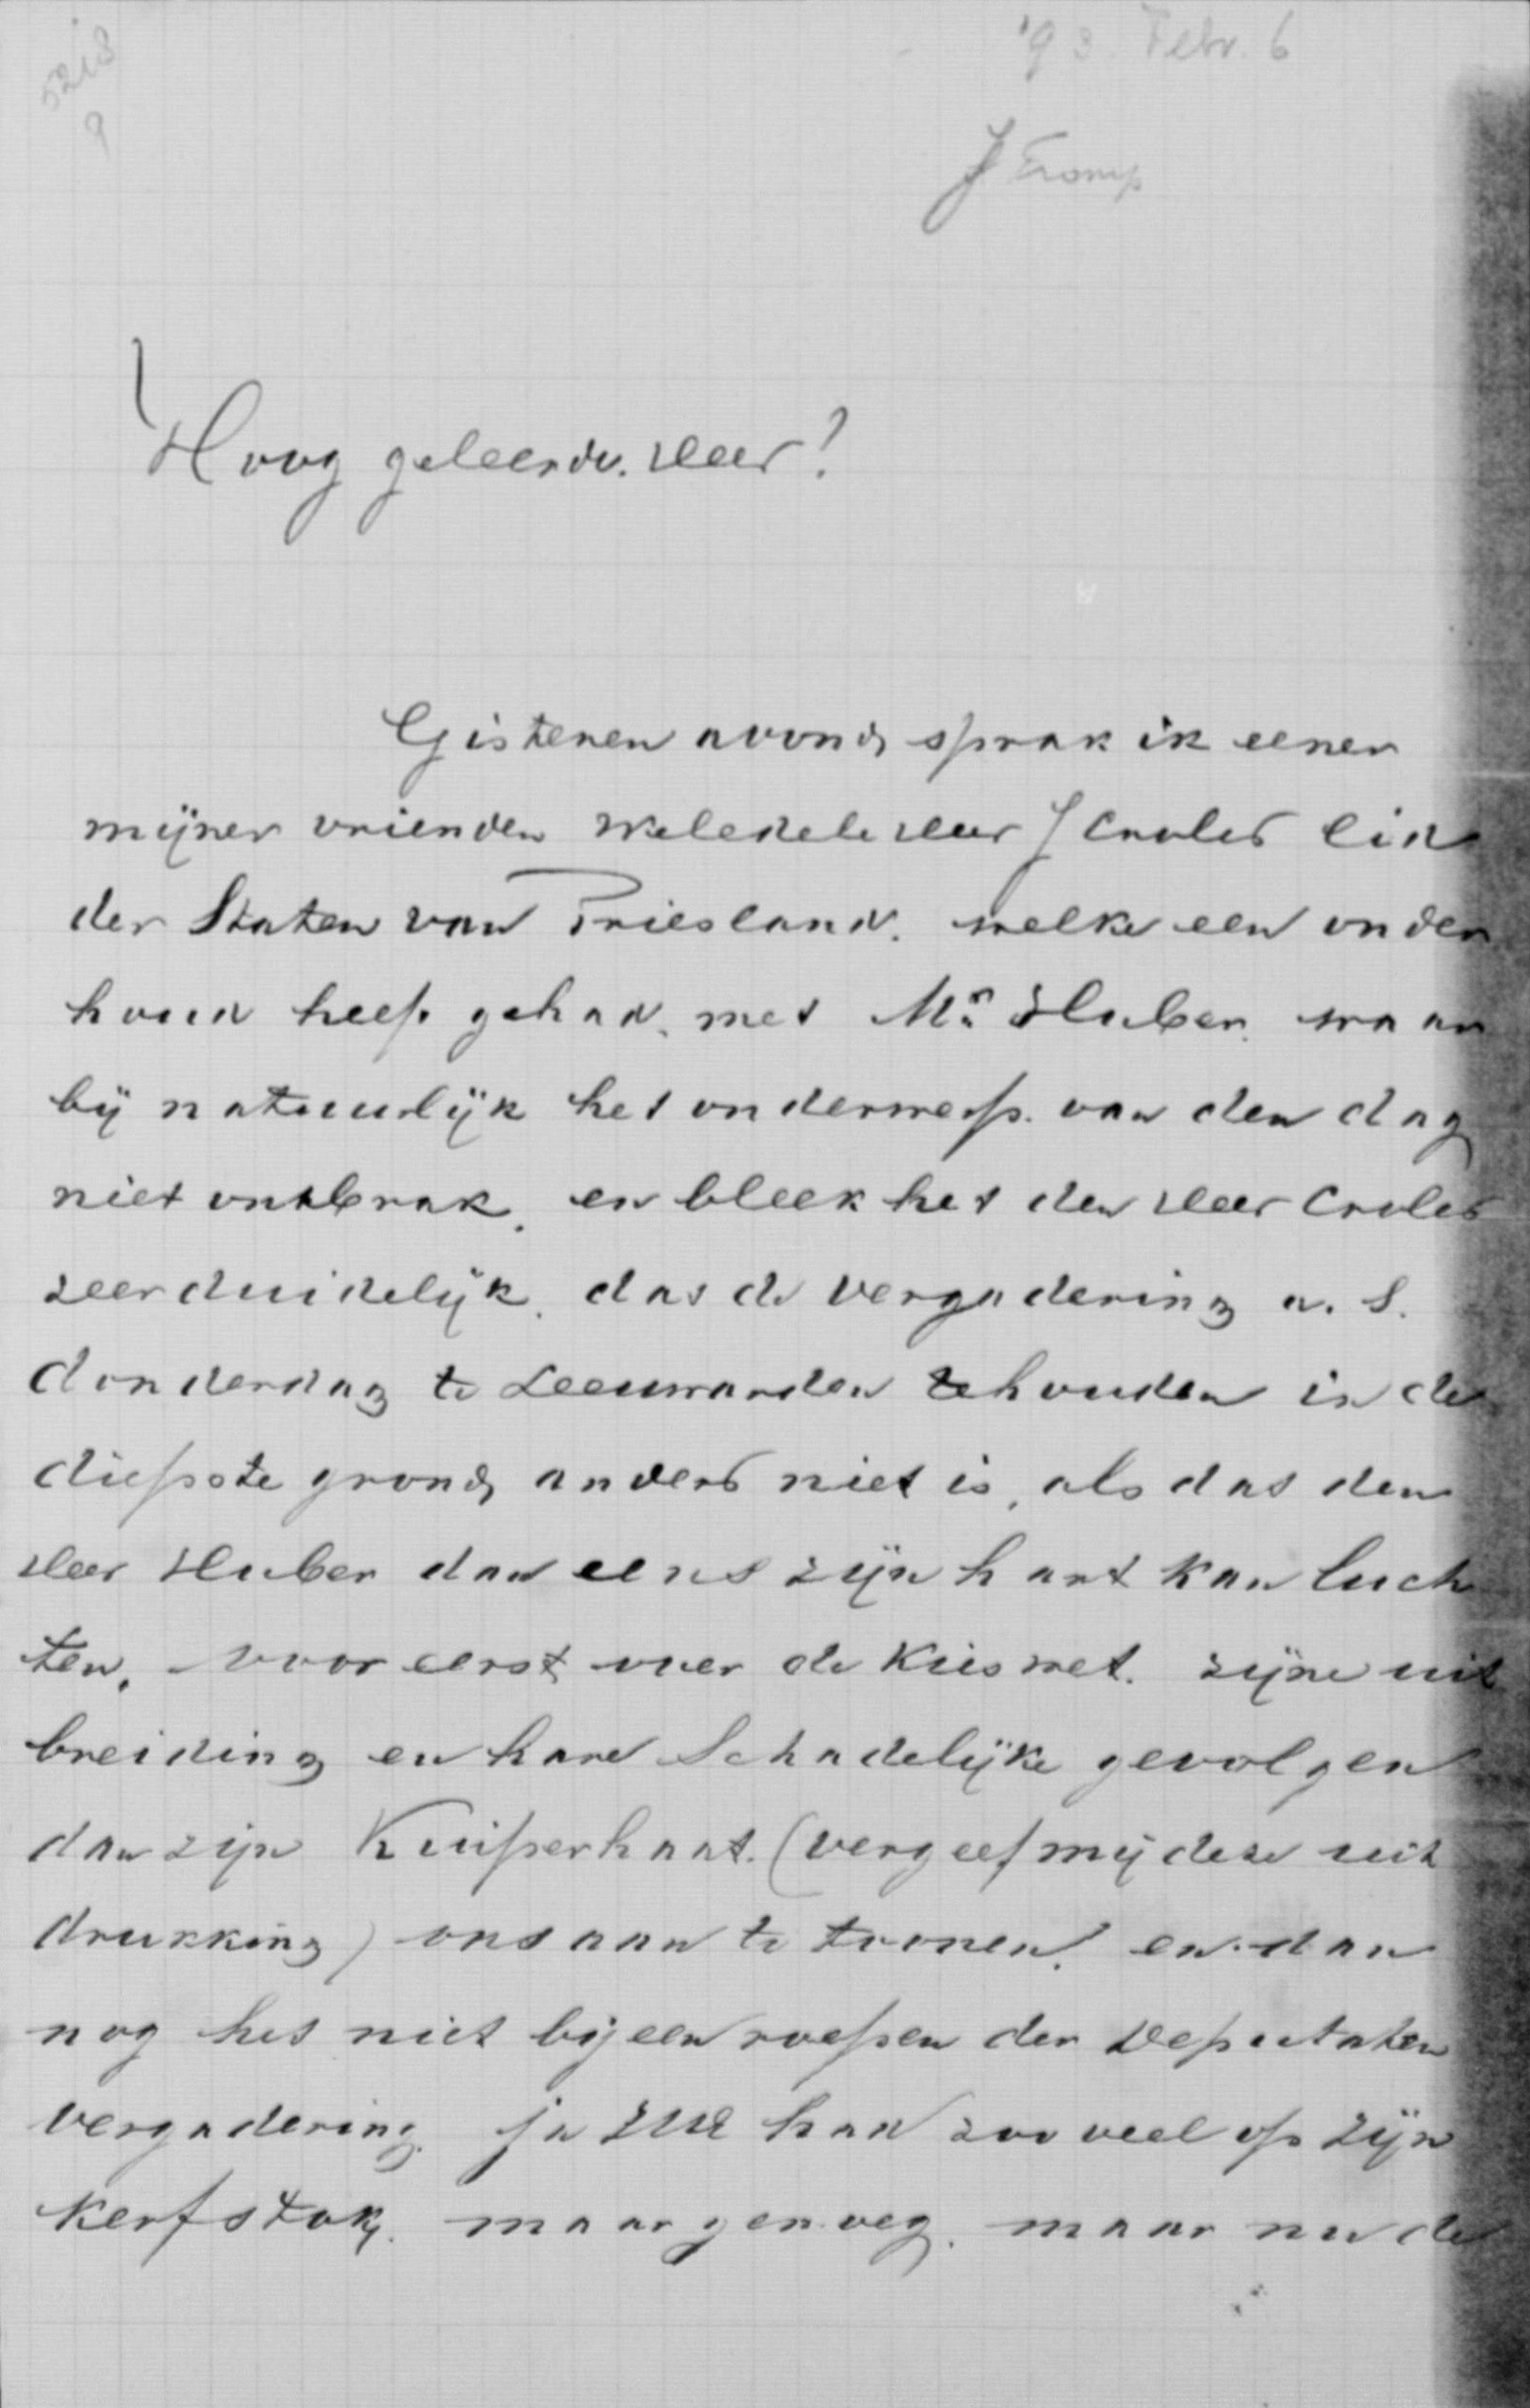 '93. Febr. 6
5218
9
J Tromp
Hoog geleerde. Heer!
Gisteren avond sprak ik eener
mijner vrienden Weledele Heer J Croles Lid
der Staten van Friesland. welke een onder
houd heeft gehad, met Mr. Huber. waar
bij natuurlijk het onderwerp. van den dag
niet ontbrak. en bleek het den Heer Croles
zeer duidelijk. dat de vergadering a. s.
donderdag te Leeuwarden te houden in de
diepste grond anders niet is, als dat den
Heer Huber dan eens zijn hart kan luch
ten. voor eerst over de Kieswet. zijne uit
breiding en hare Schadelijke gevolgen
dan zijn Kuiperhaat. (vergeef mij deze uit
drukking) ons aan te toonen. en dan
nog het niet bijeen roepen der Deputaten
vergadering. ja ZHE had zoo veel op zijn
Kerfstok. maar genoeg. maar nu de